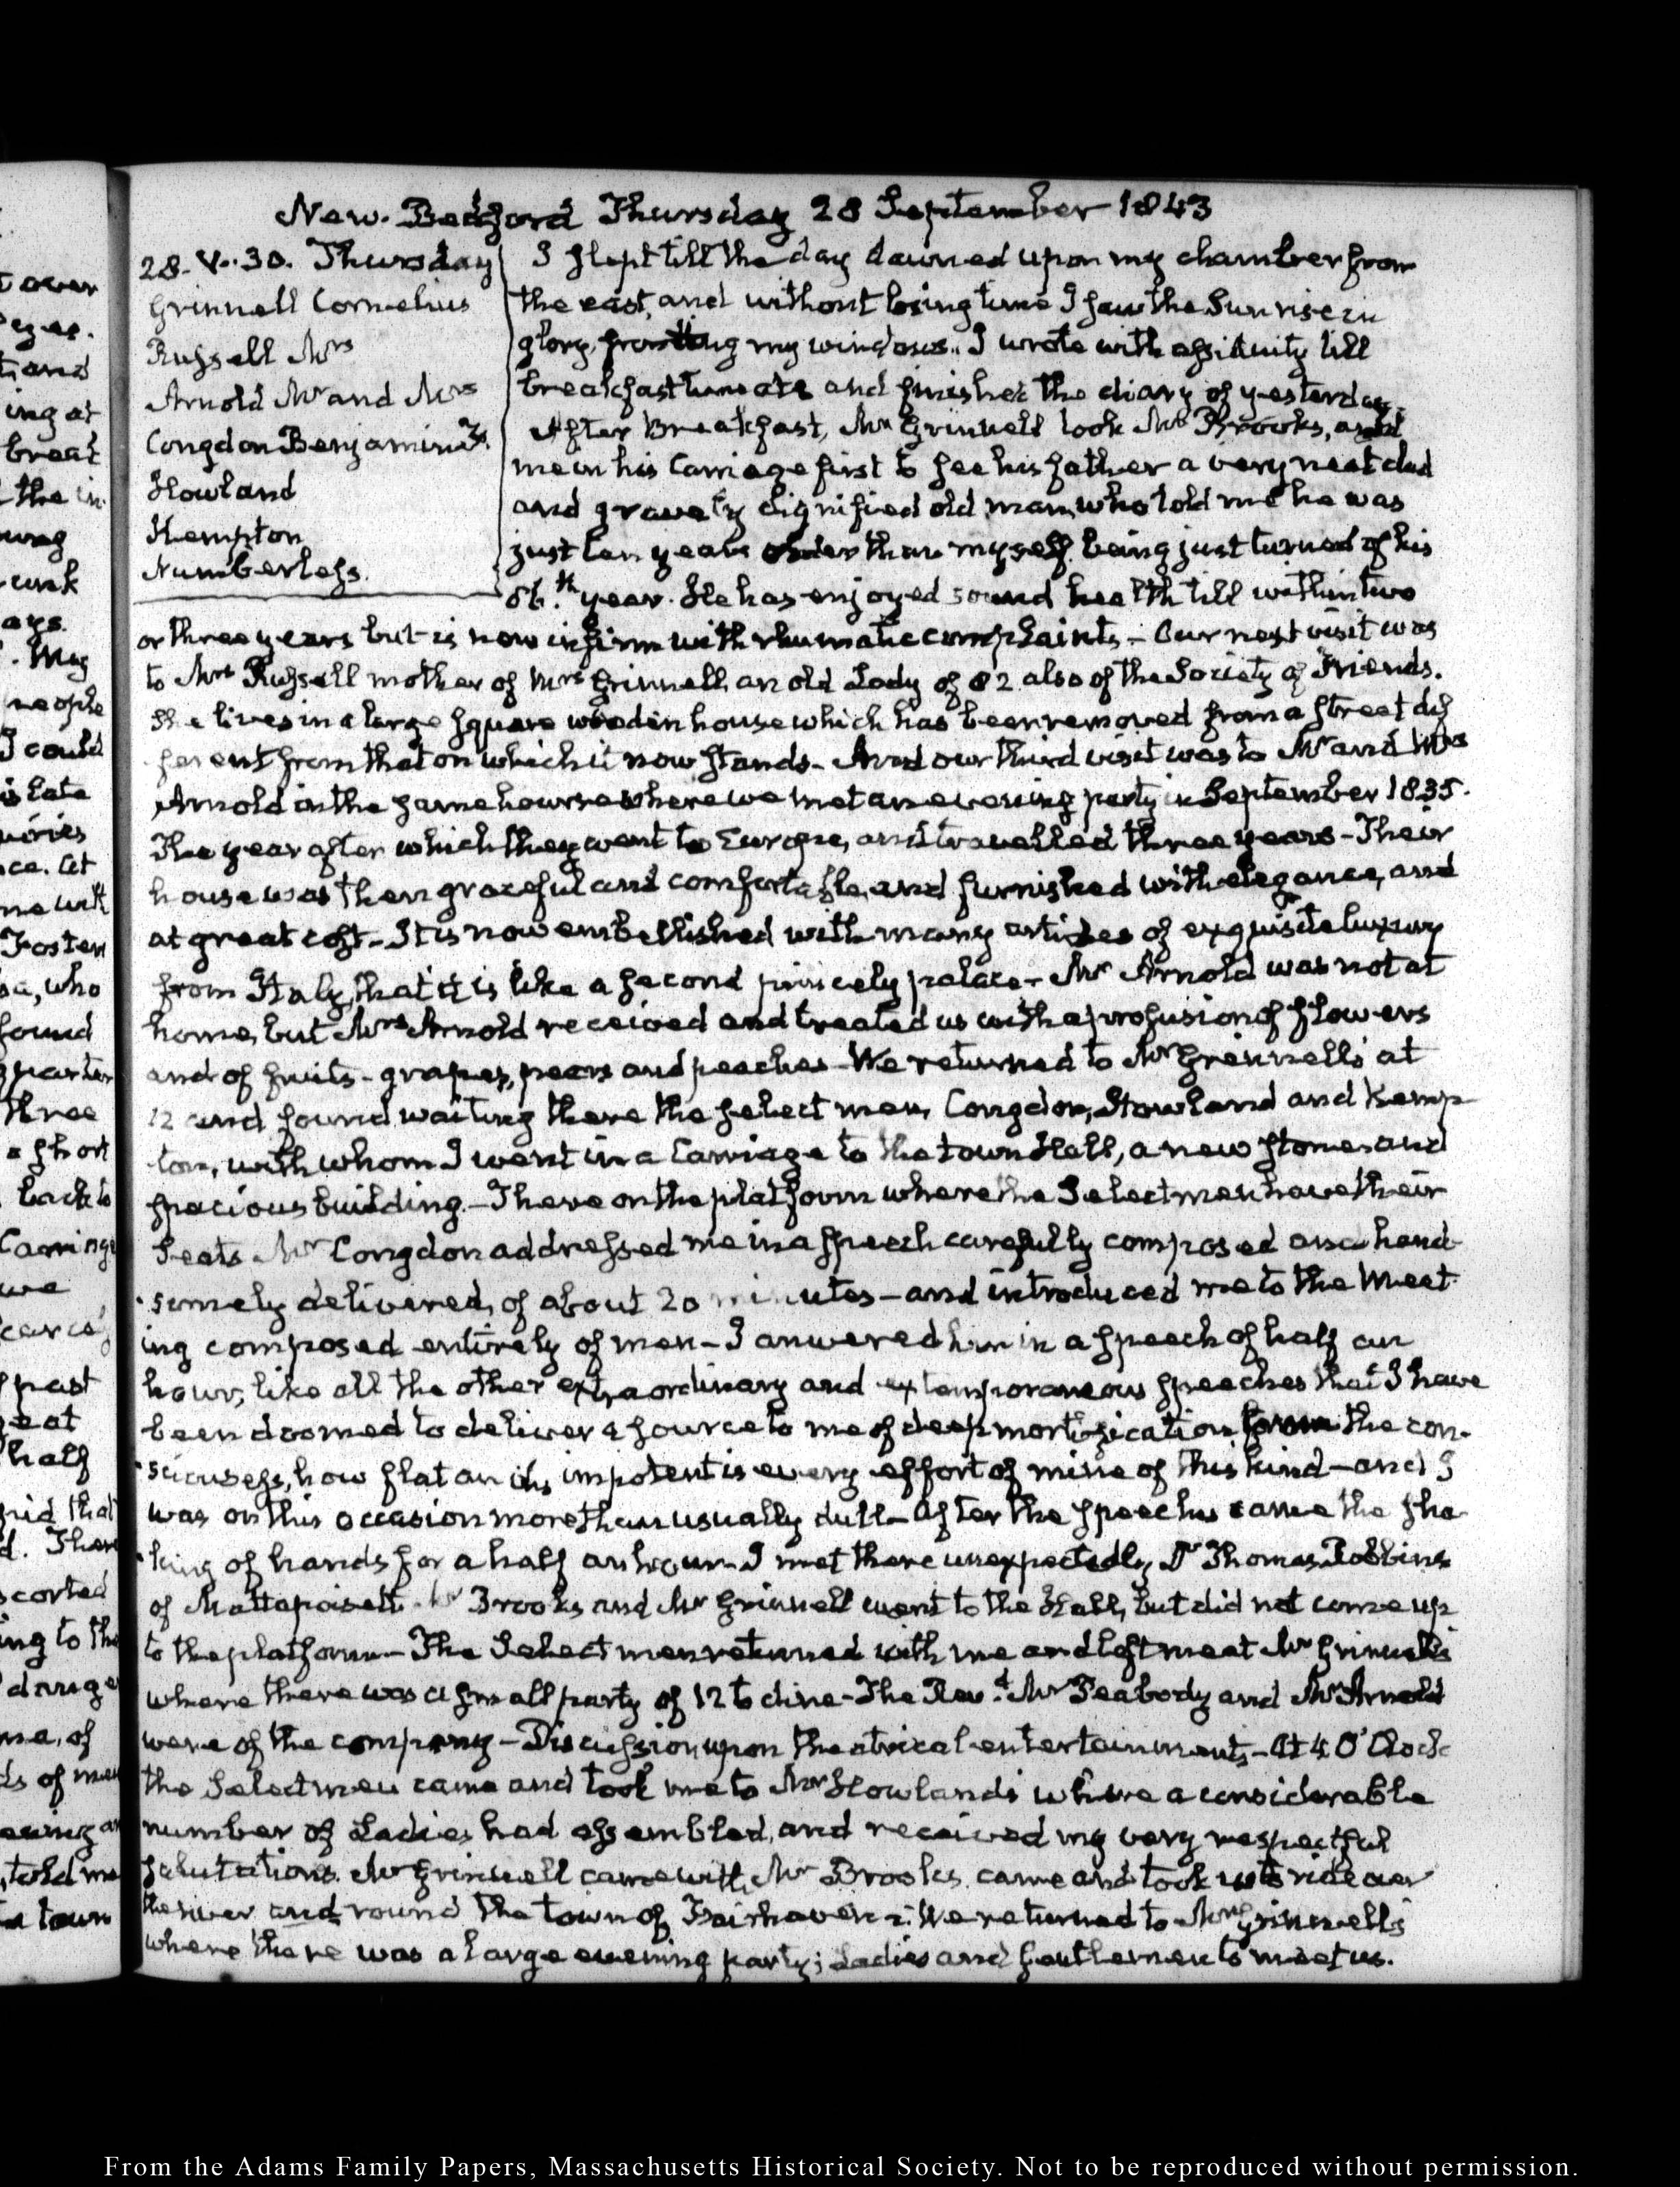 New-Bedford Thursday 28 September 1843
28. V.. 30. Thursday
Grinnell Cornelius
Russell Mrs
Arnold Mr and Mrs
Congdon Benjamin T.
Howland
Kempton
Numberless.
I slept till the day dawned upon my chamber from
the east, and without losing time I saw the Sun rise in
glory, fronting my windows.. I wrote with assiduity till
breakfast time at 8 and finished the diary of yesterday.
After Breakfast, Mr Grinnell took Mr Brooks, and
me in his Carriage first to see his father a very neat clad
and gravely dignified old man, who told me he was
just ten years older than myself. being just turned of his
86.th year. He has enjoyed sound health till within two
or three years but is now infirm with rhumatic complaints.- Our next visit was
to Mrs Russell mother of Mrs Grinnell, an old Lady of 82. also of the Society of Friends.
She lives in a large square wooden house which has been removed from a street dif
ferent from that on which it now stands- And our third visit was to Mr and Mrs
Arnold in the same house where we met an evening party in September 1835.
The year after which they went to Europe, and travelled three years- Their
house was then graceful and comfortable, and furnished with elegance, and
at great cost- It is now embellished with many articles of exquisite luxury
from Italy, that it is like a second princely palace- Mr Arnold was not at
home, but Mrs Arnold received and treated us with a profusion of flowers
and of fruits- grapes, pears and peaches- We returned to Mr Grinnell's at
12 and found waiting there the select men, Congdon, Howland and Kemp-
ton, with whom I went in a Carriage to the town Hall, a new stone and
spacious building.- There on the platform where the Selectmen have their
Seats Mr Congdon addressed me in a speech carefully composed and hand-
somely delivered, of about 20 minutes- and introduced me to the Meet-
ing composed entirely of men- I anwered him in a speech of half an
hour, like all the other extraordinary and extemporaneous speeches that I have
been doomed to deliver a source to me of deep mortification from the con-
sciousess, how flat and impotent is every effort of mine of this kind- and I
was on this occasion more than usually dull- After the speeches came the sha-
king of hands for a half an hour- I met there unexpectedly, Dr Thomas Robbins
of Mattapoisett. Mr Brooks and Mr Grinnell went to the Hall, but did not come up
to the platform- The Select men returned with me and left me at Mr Grinnell's
where there was a small party of 12 to dine- The Rev.d Mr Peabody and Mr Arnold
were of the company- Discussion upon theatrical entertainments- At 4 O'Clock
the Selectmen came and took me to Mr Howland's where a considerable
number of Ladies had assembled, and received my very respectful
salutations. Mr Grinnell came with, Mr Brooks. came and took us to ride over
the river and round the town of Fairhaven: We returned to Mr Grinnell's
where there was a large evening party; Ladies and Gentlemen to meet us.
From the Adams Family Papers, Massachusetts Historical Society. Not to be reproduced without permission.